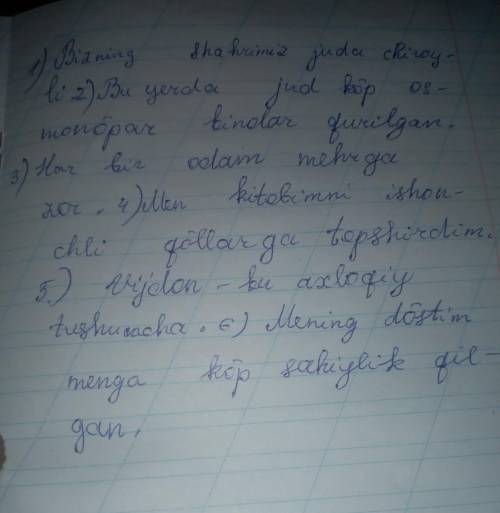 1) Bizning shahrimiz juda chiroy-
li. 2) Bu yerda jud kõp os-
monõpar binolar qurilgan.
3) Har bir odam mehrga
zor. 4) Men kitobimni ishon-
chli qõllarga topshirdim.
5.) Vijdon - bu axloqiy
tushuncha. 6) Mening dõstim
menga kõp sahiylik qil-
gan.